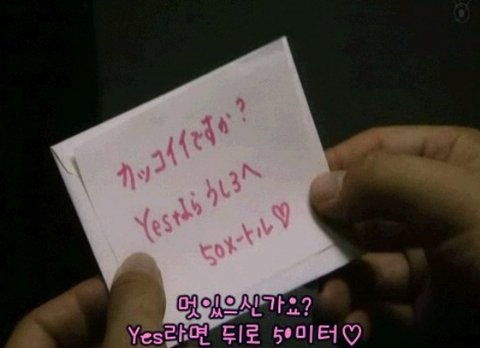 カッコイイですか?
Yesならうしろへ
50メートル♡
멋있으신가요?
Yes라면 뒤로 50미터♡